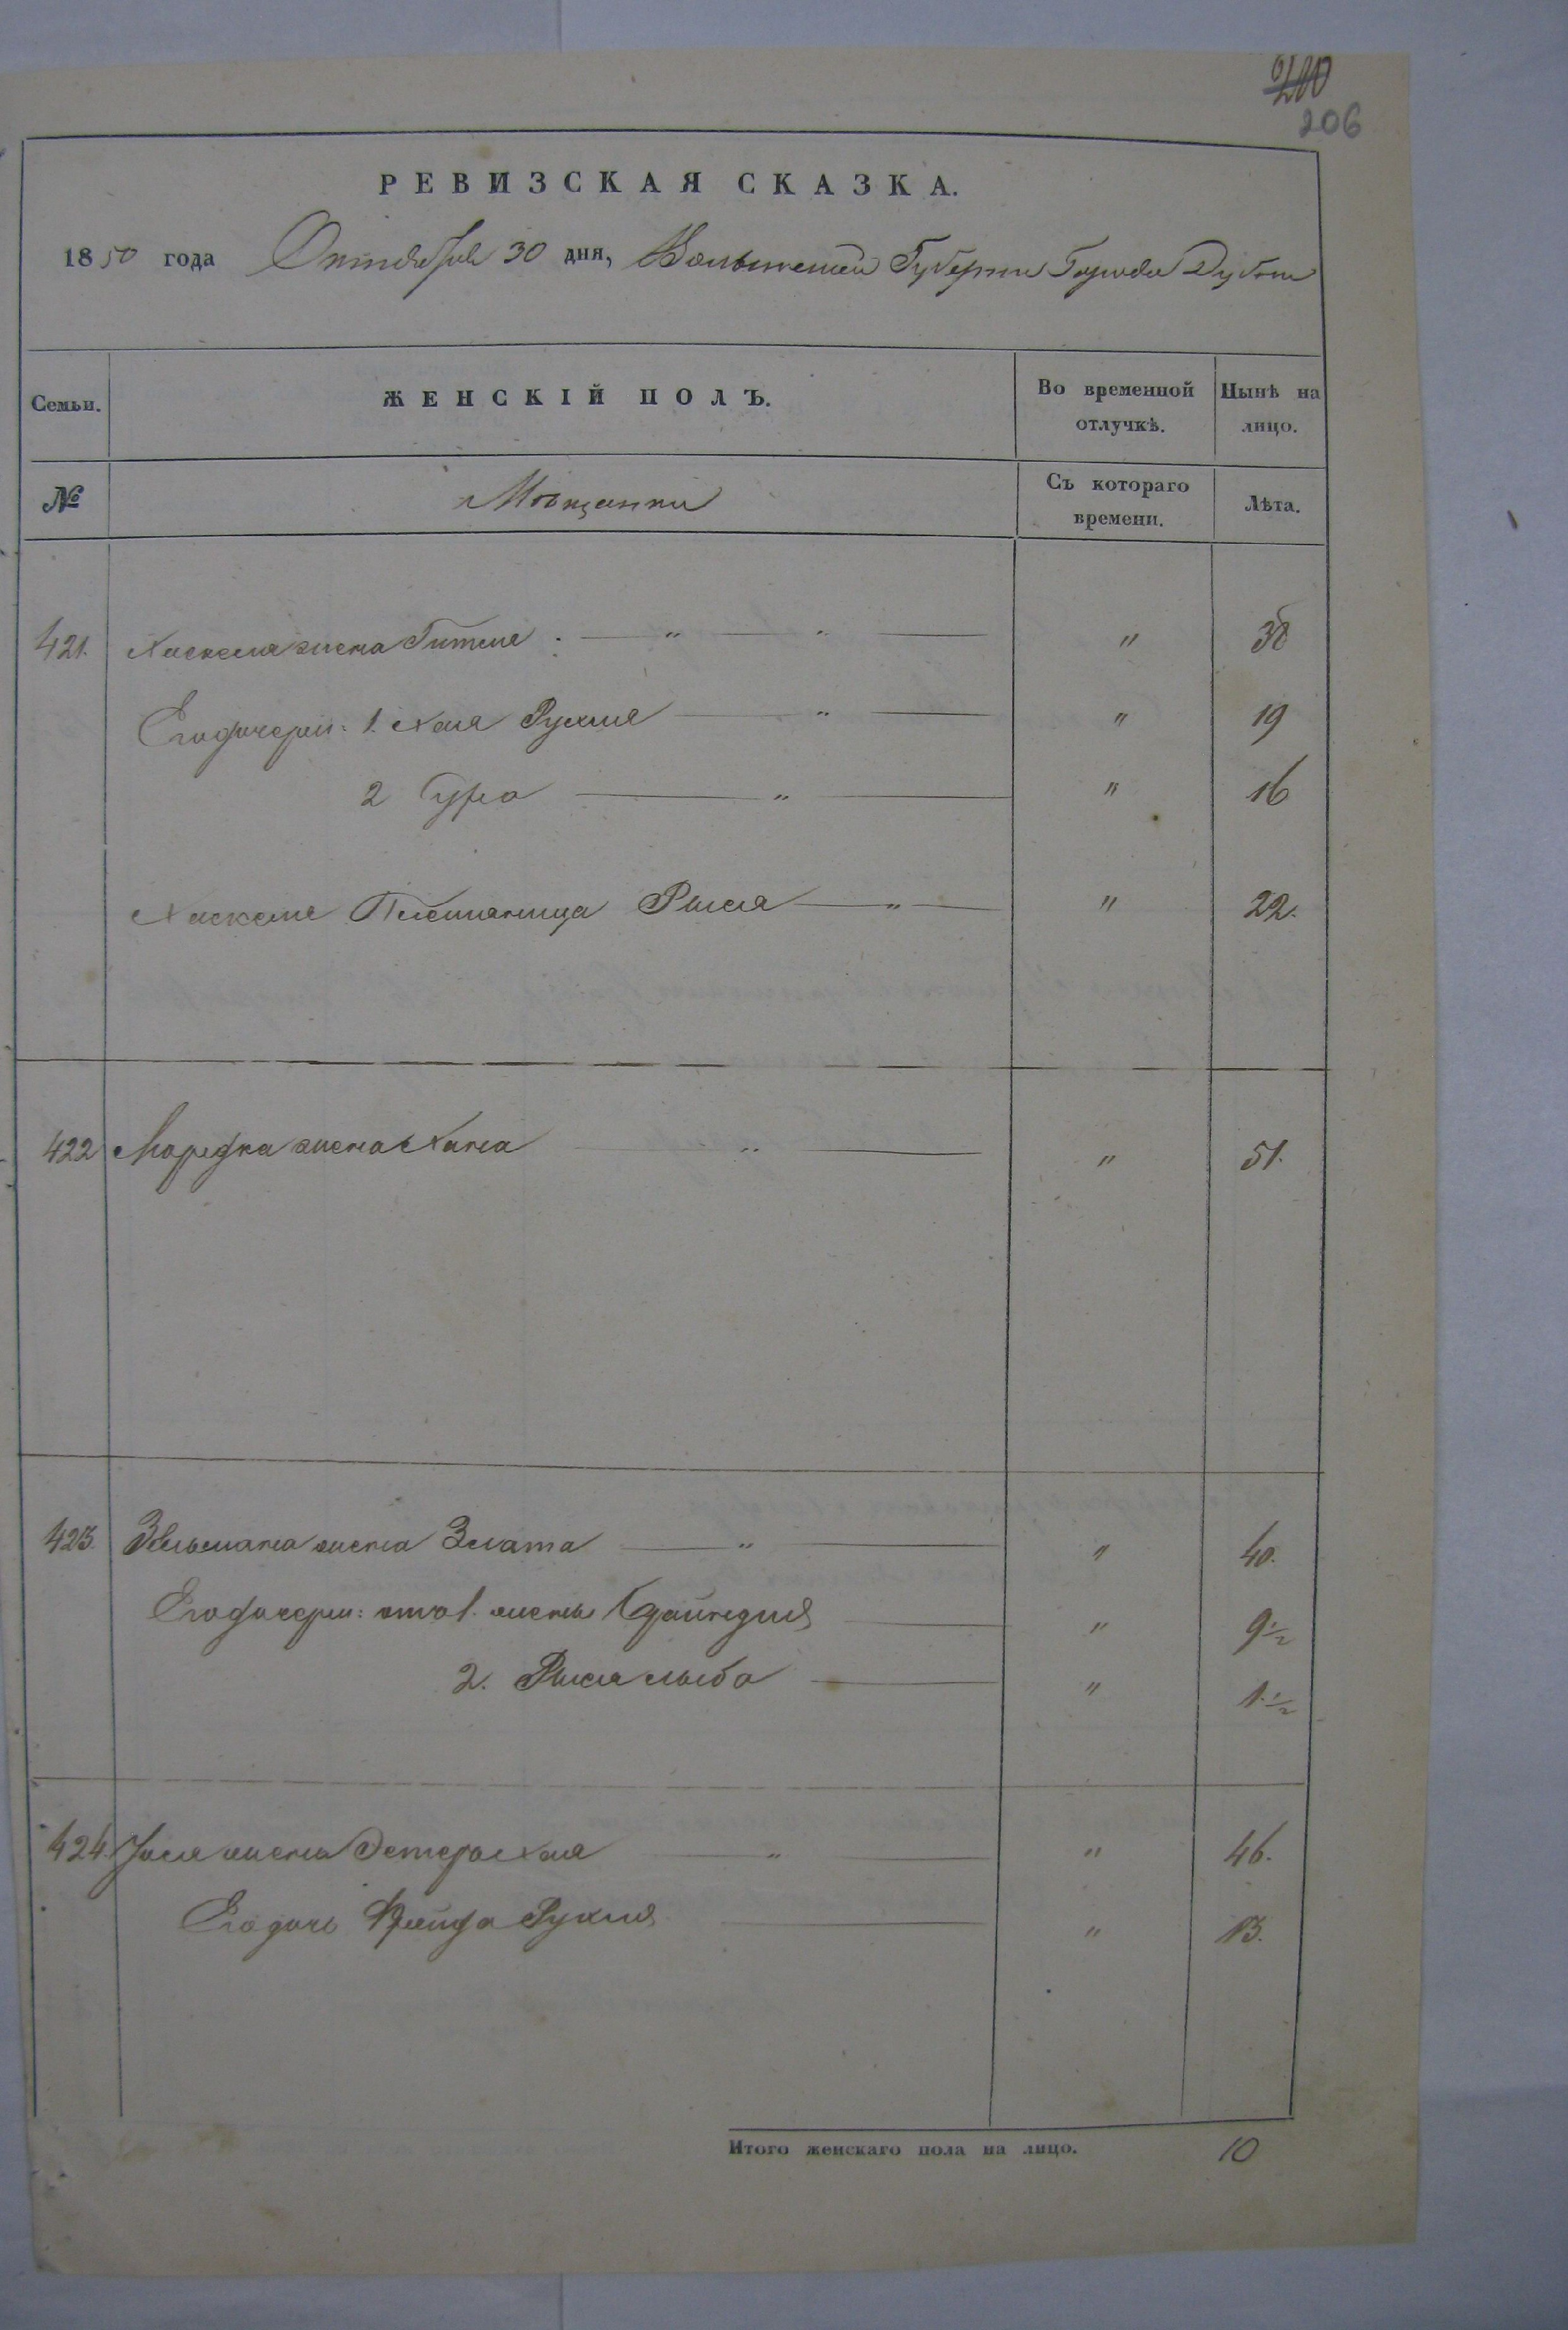 200
206
РЕВИЗСКАЯ СКАЗКА.
1850 года Октября 30 дня, Волынской Губернии Города Дубна
Семьи. ЖЕНСКІЙ ПОЛЪ. Во временной отлучкѣ. Нынѣ на лицо.
№ Мѣщанки Съ котораго времени. Лѣта.
421. Хаскеля жена Гитля " 38
Его дочери: 1. Хая Рухля " 19
2 Сура " 16
Хаскеля Племянница Рыся " 22.
422 Мордка жена Хана " 51.
423. Зельмана жена Злата " 40.
Его дочери: от 1. жены " 9 1/2
2. Рыся " 1. 1/2
424. жена Эстера Хая " 46.
Его дочь Фрейда Рухля " 13.
Итого женскаго пола на лицо. 10